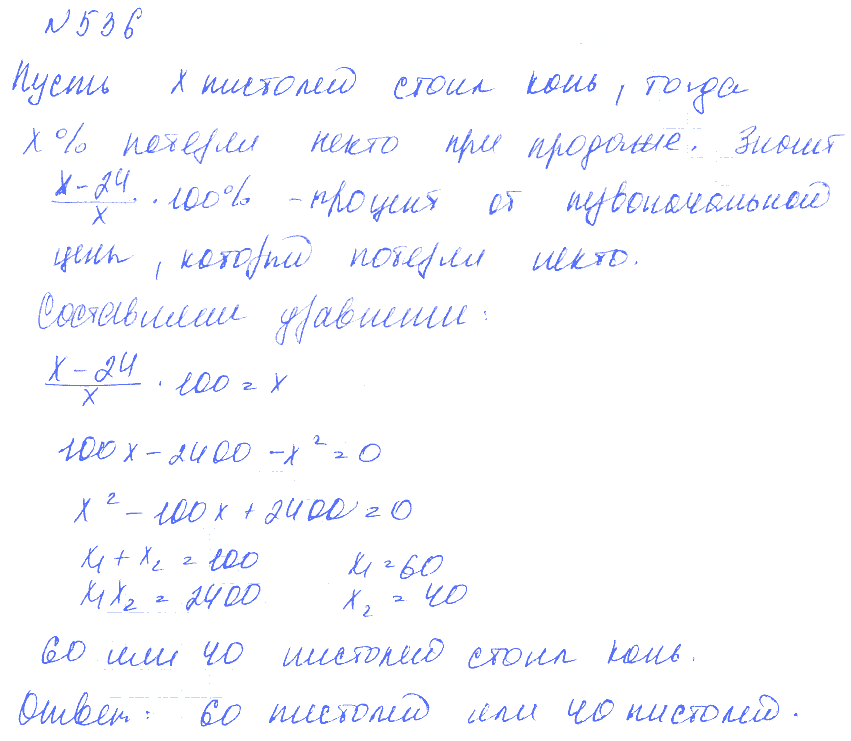 №536
Пусть x пистолей стоил конь, тогда
x% потерял некто при продаже. Значит
(x-24)/x · 100% - процент от первоначальной
цены, который потерял некто.
Составим уравнение:
(x-24)/x · 100 = x
100x - 2400 - x² = 0
x² - 100x + 2400 = 0
x₁ + x₂ = 100 x₁ = 60
x₁x₂ = 2400 x₂ = 40
60 или 40 пистолей стоил конь.
Ответ: 60 пистолей или 40 пистолей.